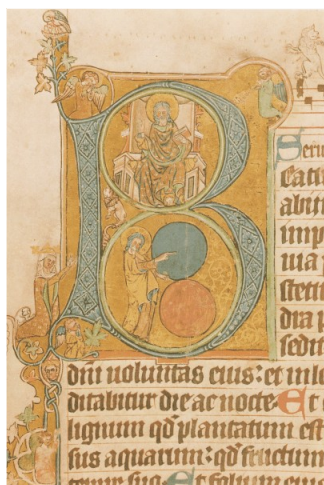 B
abiit
impi
uia
stetit
dra p
sedit
dñi uoluntas eius: et in le
ditabitur die ac nocte. Et e
lignum qd plantatum est
sus aquarum: qd fructum
suo. Et folium eius